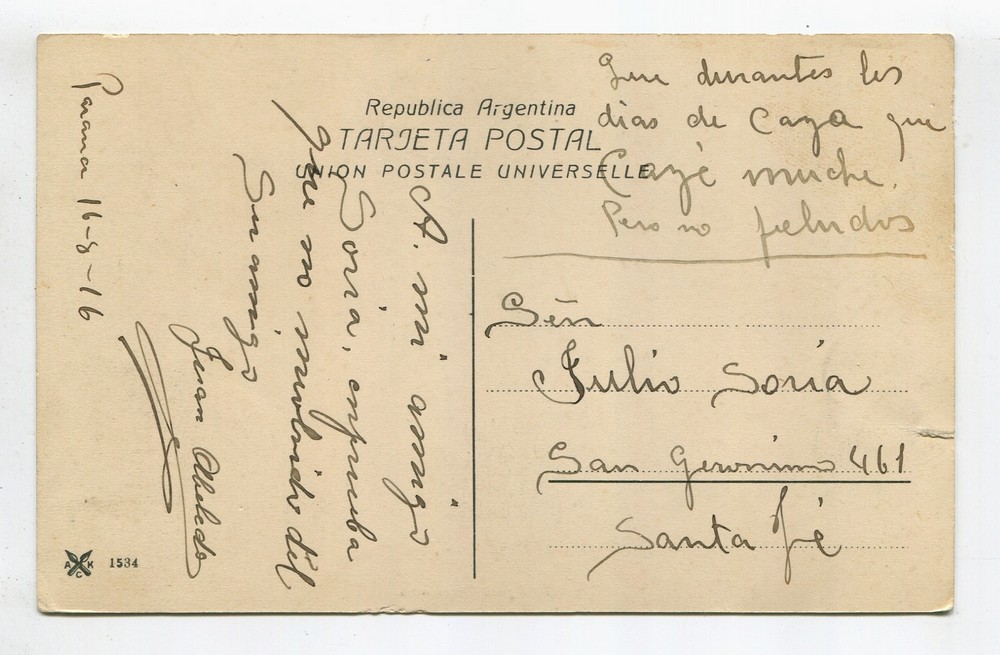 Republica Argentina
TARJETA POSTAL
UNION POSTALE UNIVERSELLE
Parana 16-8-16
A. mi amigo
Soria, enprueba
que no miolvido dél
Su amigo
Juan
Que durantes los
dias de Caza que
Cazé muche.
Pero no peludos
Señ
Julio Soria
San Geronimo 461
Santa Fé
A K
C
1534